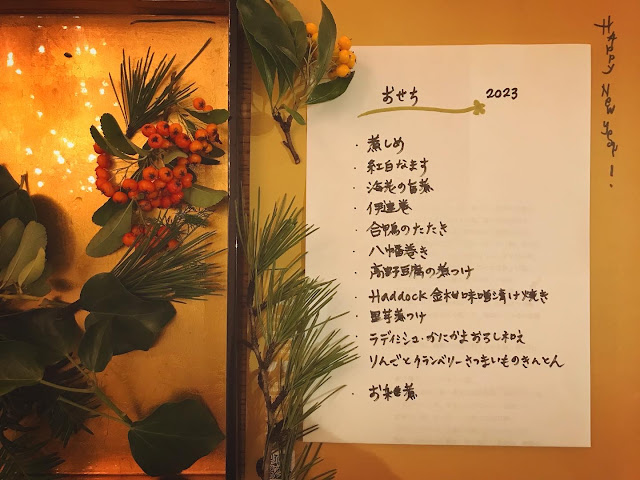 おせち 2023
・煮しめ
・紅白なます
・海老の旨煮
・伊達巻
・合鴨のたたき
・八幡巻き
・高野豆腐の煮つけ
・Haddock 金柑味噌漬け焼き
・里芋煮つけ
ラディッシュ・かにかまおろし和え
りんごとクランベリーさつまいものきんとん
・お雑煮
HAppy New year!